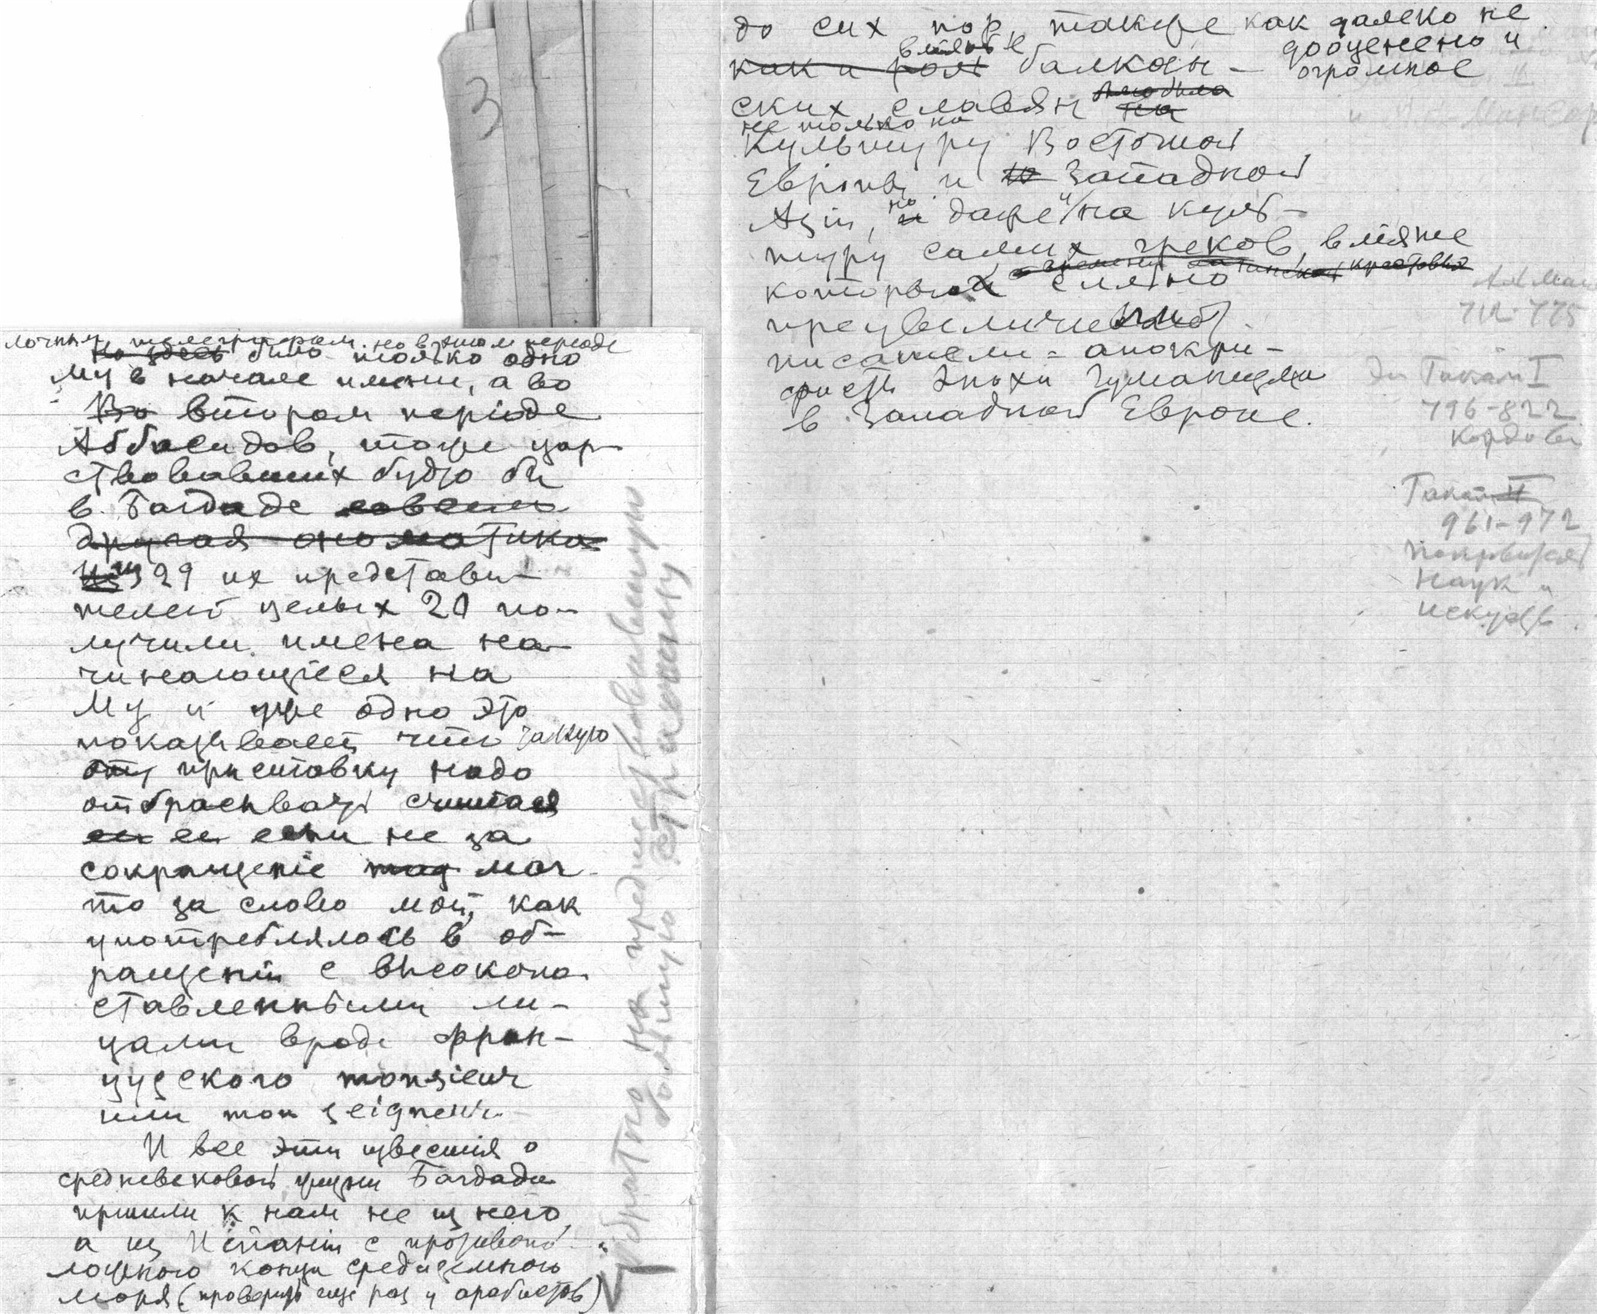 3
но в этом периоде
было только одно
Му в начале имени, а во
Во втором періоде
Аббасидов, тоже цар-
ствовавших будто бы
в Багдаде совсем
другая ономатика
из 29 их представи-
телей целых 20 по-
лучили имена на-
чинающіеся на
Му и уже одно это
показывает что такую
эту приставку надо
отбрасывать считая
ее если не за
сокращеніе мон
то за слово мой, как
употреблялось в об-
ращеніи с высокопо-
ставленными ли-
цами вроде фран-
цузского monsieur
или mon seigneur.
И все эти известія о
средневековой жизни Багдада
пришли к нам не из него,
а из Испаніи с противопо-
ложного конца средиземного
моря (проверить еще раз у арабистов)
обратно на предшествовавшую
большую страницу
до сих пор, также как далеко не
дооценено и
вліяние
как и роль балкан-
огромное
ских славян
на
не только на
культуру Восточной
Европы и Западной
Азіи, но и даже и на куль-
туру самих греков, вліяние
с времени латинских крестовых
которых сильно
преувеличено
писатели - апокри-
фисты эпохи гуманизма
в Западной Европе.
712-775
Гакам I
796-822
Кордова
Гакам II
961-972
покровител
наук и
искусств